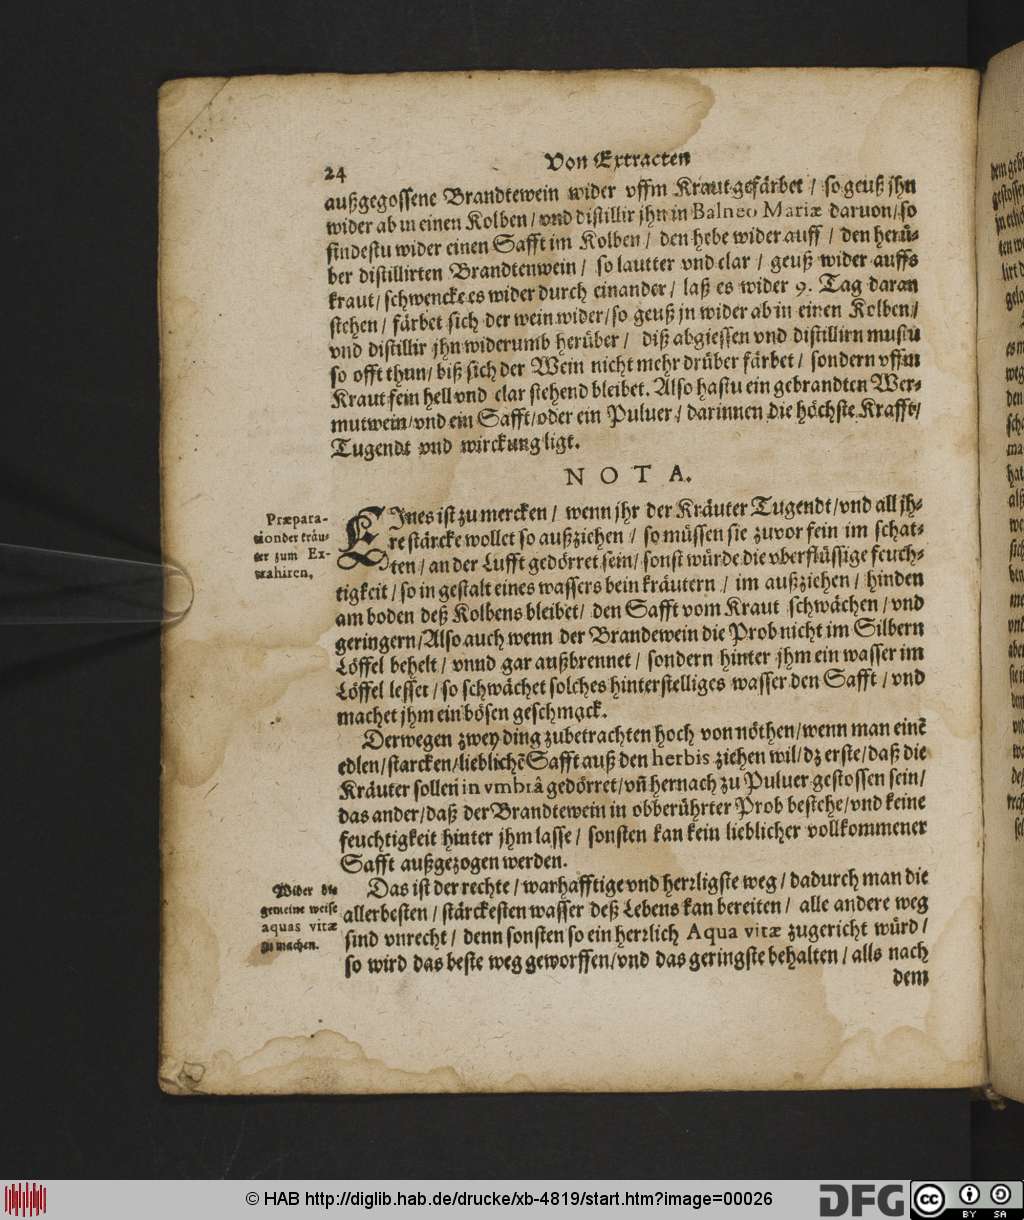 24 Von Extracten
außgegossene Brandtewein wider vffm Kraut gefärbet / so geuß jhn
wider ab in einen Kolben / vnd distillir jhn in Balneo Mariæ daruon / so
findestu wider einen Safft im Kolben / den hebe wider auff / den herü-
ber distillirten Brandtenwein / so lautter vnd clar / geuß wider auffs
kraut / schwencke es wider durch einander / laß es wider 9. Tag daran
stehen / färbet sich der wein wider / so geuß jn wider ab in einen Kolben /
vnd distillir jhn widerumb herüber / diß abgiessen vnd distillirn mustu
so offt thun / biß sich der Wein nicht mehr drüber färbet / sondern vffm
Kraut fein hell vnd clar stehend bleibet. Also hastu ein gebrandten Wer-
mutwein / vnd ein Safft / oder ein Puluer / darinnen die höchste Krafft /
Tugendt vnd wirckung ligt.
NOTA.
Præpara-
tion der kräu-
ter zum Ex-
trahiren.
EInes ist zu mercken / wenn jhr der Kräuter Tugendt / vnd all jh-
re stärcke wollet so außziehen / so müssen sie zuvor fein im schat-
ten / an der Lufft gedörret sein / sonst würde die vberflüssige feuch-
tigkeit / so in gestalt eines wassers bein kräutern / im außziehen / hinden
am boden deß Kolbens bleibet / den Safft vom Kraut schwächen / vnd
geringern / Also auch wenn der Brandewein die Prob nicht im Silbern
Löffel behelt / vnnd gar außbrennet / sondern hinter jhm ein wasser im
Löffel lesset / so schwächet solches hinterstelliges wasser den Safft / vnd
machet jhm ein bösen geschmack.
Derwegen zwey ding zubetrachten hoch von nöthen / wenn man einē
edlen / starcken / lieblichē Safft auß den herbis ziehen wil / dz erste / daß die
Kräuter sollen in vmbrâ gedörret / vñ hernach zu Puluer gestossen sein /
das ander / daß der Brandtewein in obberührter Prob bestehe / vnd keine
feuchtigkeit hinter jhm lasse / sonsten kan kein lieblicher vollkommener
Safft außgezogen werden.
Wider die
gemeine weise
aquas vitæ
zu machen.
Das ist der rechte / warhafftige vnd herrligste weg / dadurch man die
allerbesten / stärckesten wasser deß Lebens kan bereiten / alle andere weg
sind vnrecht / denn sonsten so ein herrlich Aqua vitæ zugericht würd /
so wird das beste weg geworffen / vnd das geringste behalten / alls nach
dem
© HAB http://diglib.hab.de/drucke/xb-4819/start.htm?image=00026
DFG
cc
BY SA